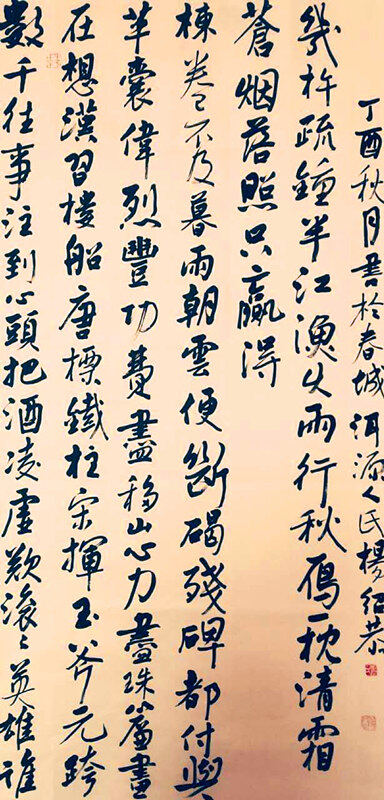 數千往事注到心頭把酒凌虛歎滾々英雄誰
在想漢習樓船唐標鐵柱宋揮玉斧元跨
革囊偉烈豐功費盡移山心力盡珠簾畫
棟卷不及暮雨朝雲便斷碣殘碑都付與
蒼烟落照只贏得
幾杵疏鐘半江漁火兩行秋雁一枕清霜
丁酉秋月書於春城洱源人氏楊紹恭